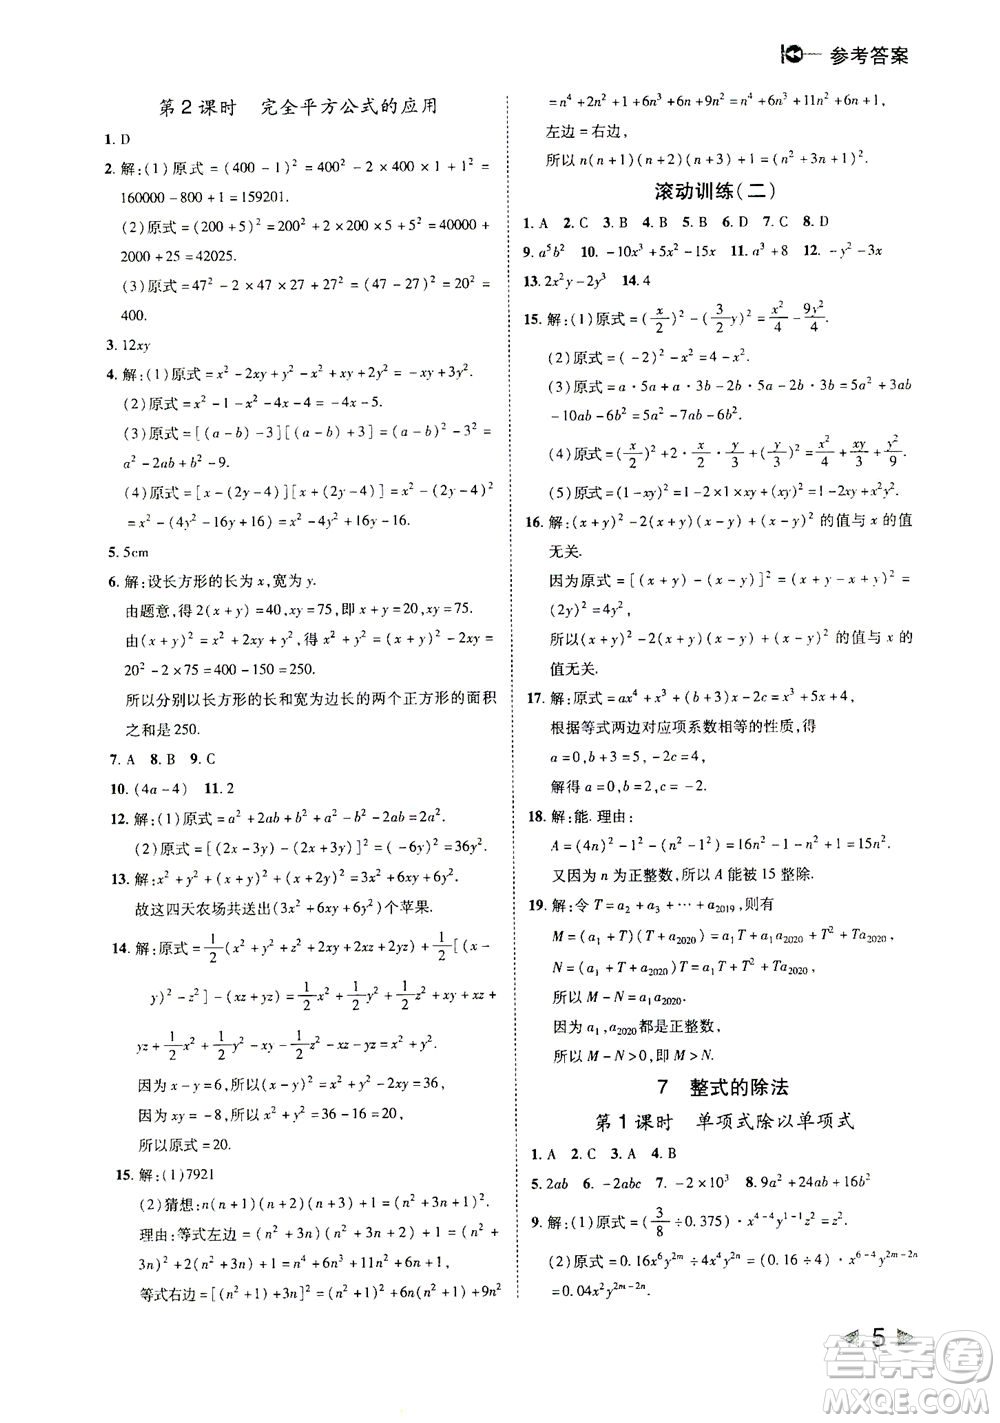 参考答案
第2课时 完全平方公式的应用
1. D
2. 解:(1)原式=(400-1)²=400²-2×400×1+1²=
160000-800+1=159201.
(2)原式=(200+5)²=200²+2×200×5+5²=40000+
2000+25=42025.
(3)原式=47²-2×47×27+27²=(47-27)²=20²=
400.
3. 12xy
4. 解:(1)原式=x²-2xy+y²-x²+xy+2y²=-xy+3y².
(2)原式=x²-1-x²+4x-4=4x-5.
(3)原式=[(a-b)-3][(a-b)+3]=(a-b)²-3²=
a²-2ab+b²-9.
(4)原式=[x-(2y-4)][x+(2y-4)]=x²-(2y-4)²
=x²-(4y²-16y+16)=x²-4y²+16y-16.
5. 5cm
6. 解:设长方形的长为x,宽为y.
由题意,得2(x+y)=40,xy=75,即x+y=20,xy=75.
由(x+y)²=x²+2xy+y²,得x²+y²=(x+y)²-2xy=
20²-2×75=400-150=250.
所以分别以长方形的长和宽为边长的两个正方形的面积
之和是250.
7. A 8. B 9. C
10. (4a-4) 11. 2
12. 解:(1)原式=a²+2ab+b²+a²-b²-2ab=2a².
(2)原式=[(2x-3y)-(2x+3y)]²=(-6y)²=36y².
13. 解:x²+y²+(x+y)²+(x+2y)²=3x²+6xy+6y².
故这四天农场共送出(3x²+6xy+6y²)个苹果.
14. 解:原式=1/2(x²+y²+z²+2xy+2xz+2yz)+1/2[(x-
y)²-z²]-(xz+yz)=1/2x²+1/2y²+1/2z²+xy+xz+
yz+1/2x²+1/2y²-xy-1/2z²-xz-yz=x²+y².
因为x-y=6,所以(x-y)²=x²+y²-2xy=36,
因为xy=-8,所以x²+y²=36+2xy=20,
所以原式=20.
15. 解:(1)7921
(2)猜想:n(n+1)(n+2)(n+3)+1=(n²+3n+1)².
理由:等式左边=(n²+n)(n+2)(n+3)+1=(n³+
3n²+2n)(n+3)+1=n⁴+6n³+11n²+6n+1,
等式右边=[(n²+1)+3n]²=(n²+1)²+6n(n²+1)+9n²
=n⁴+2n²+1+6n³+6n+9n²=n⁴+6n³+11n²+6n+1,
左边=右边,
所以n(n+1)(n+2)(n+3)+1=(n²+3n+1)².
滚动训练(二)
1. A 2. C 3. B 4. B 5. B 6. D 7. C 8. D
9. a⁵b² 10. -10x³+5x²-5x 11. a³+8 12. -y²-3x
13. 2x²y-2y³ 14. 4
15. 解:(1)原式=(x/2)²-(3/2y)²=x²/4-9y²/4.
(2)原式=(-2)²-x²=4-x².
(3)原式=a·5a+a·3b-2b·5a-2b·3b=5a²+3ab
-10ab-6b²=5a²-7ab-6b².
(4)原式=(x/2)²+2·x/2·y/3+(y/3)²=x²/4+xy/3+y²/9.
(5)原式=(1-xy)²=1-2xy+x²y².
16. 解:(x+y)²-2(x+y)(x-y)+(x-y)²的值与x的值
无关.
因为原式=[(x+y)-(x-y)]²=(x+y-x+y)²=
(2y)²=4y²,
所以(x+y)²-2(x+y)(x-y)+(x-y)²的值与x的
值无关.
17. 解:原式=ax⁴+x³+(b+3)x-2c=x³+5x+4,
根据等式两边对应项系数相等的性质,得
a=0,b+3=5,-2c=4,
解得a=0,b=2,c=-2.
18. 解:能. 理由:
A=(4n)²-1²-(n²-1²)=16n²-1-n²+1=15n².
又因为n为正整数,所以A能被15整除.
19. 解:令T=a₂+a₃+⋯+a₂₀₁₉,则有
M=(a₁+T)(T+a₂₀₂₀)=a₁T+a₁a₂₀₂₀+T²+Ta₂₀₂₀,
N=(a₁+T+a₂₀₂₀)T=a₁T+T²+Ta₂₀₂₀,
所以M-N=a₁a₂₀₂₀.
因为a₁,a₂₀₂₀都是正整数,
所以M-N>0,即M>N.
7 整式的除法
第1课时 单项式除以单项式
1. A 2. C 3. A 4. B
5. 2ab 6. -2abc 7. -2×10³ 8. 9a²+24a+16
9. 解:(1)原式=(3/8÷0.375)·x⁴⁻⁴y¹⁻¹z²=z².
(2)原式=0.16x⁶y²ᵐ÷4x⁴y²ⁿ=(0.16÷4)·x⁶⁻⁴y²ᵐ⁻²ⁿ
=0.04x²y²ᵐ⁻²ⁿ.
5
答案圈
MXQE.COM